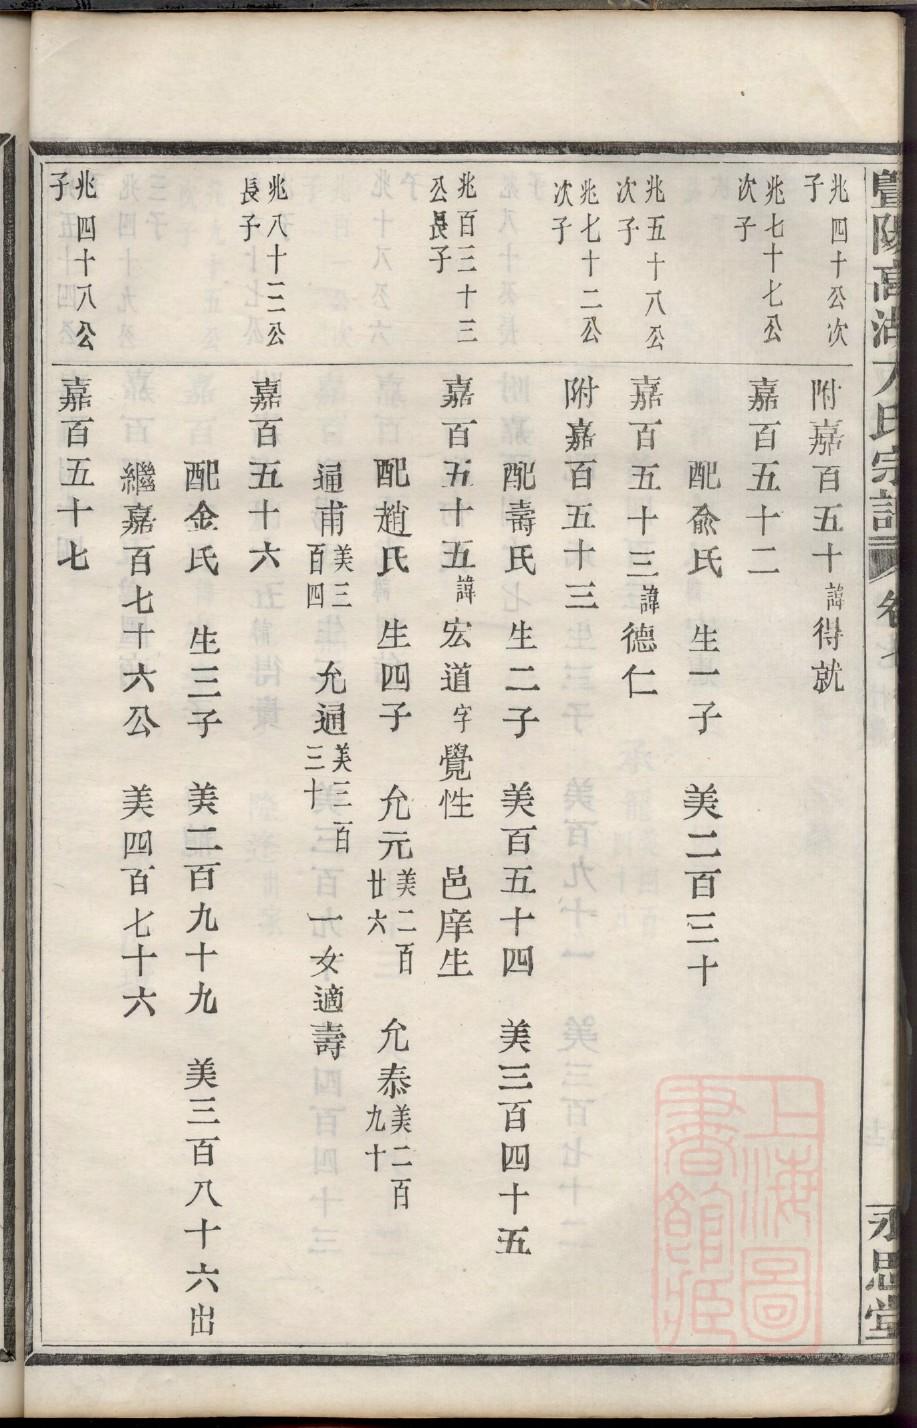 暨陽高湖 氏宗譜 卷七
永思堂
兆四十公次子
附嘉百五十諱得就
兆七十七公次子
嘉百五十二
配兪氏 生一子 美二百三十
兆五十八公次子
嘉百五十三諱德仁
兆七十二公次子
附嘉百五十三
配壽氏 生二子 美百五十四 美三百四十五
兆百三十三公長子
嘉百五十五諱宏道字覺性 邑庠生
配趙氏 生四子 允元美二百廿六 允泰美二百九十
通甫美三百四 允通美三百三十 一女適壽
兆八十三公長子
嘉百五十六
配金氏 生三子 美二百九十九 美三百八十六出
繼嘉百七十六公 美四百七十六
兆四十八公子
嘉百五十七
上海圖書館藏